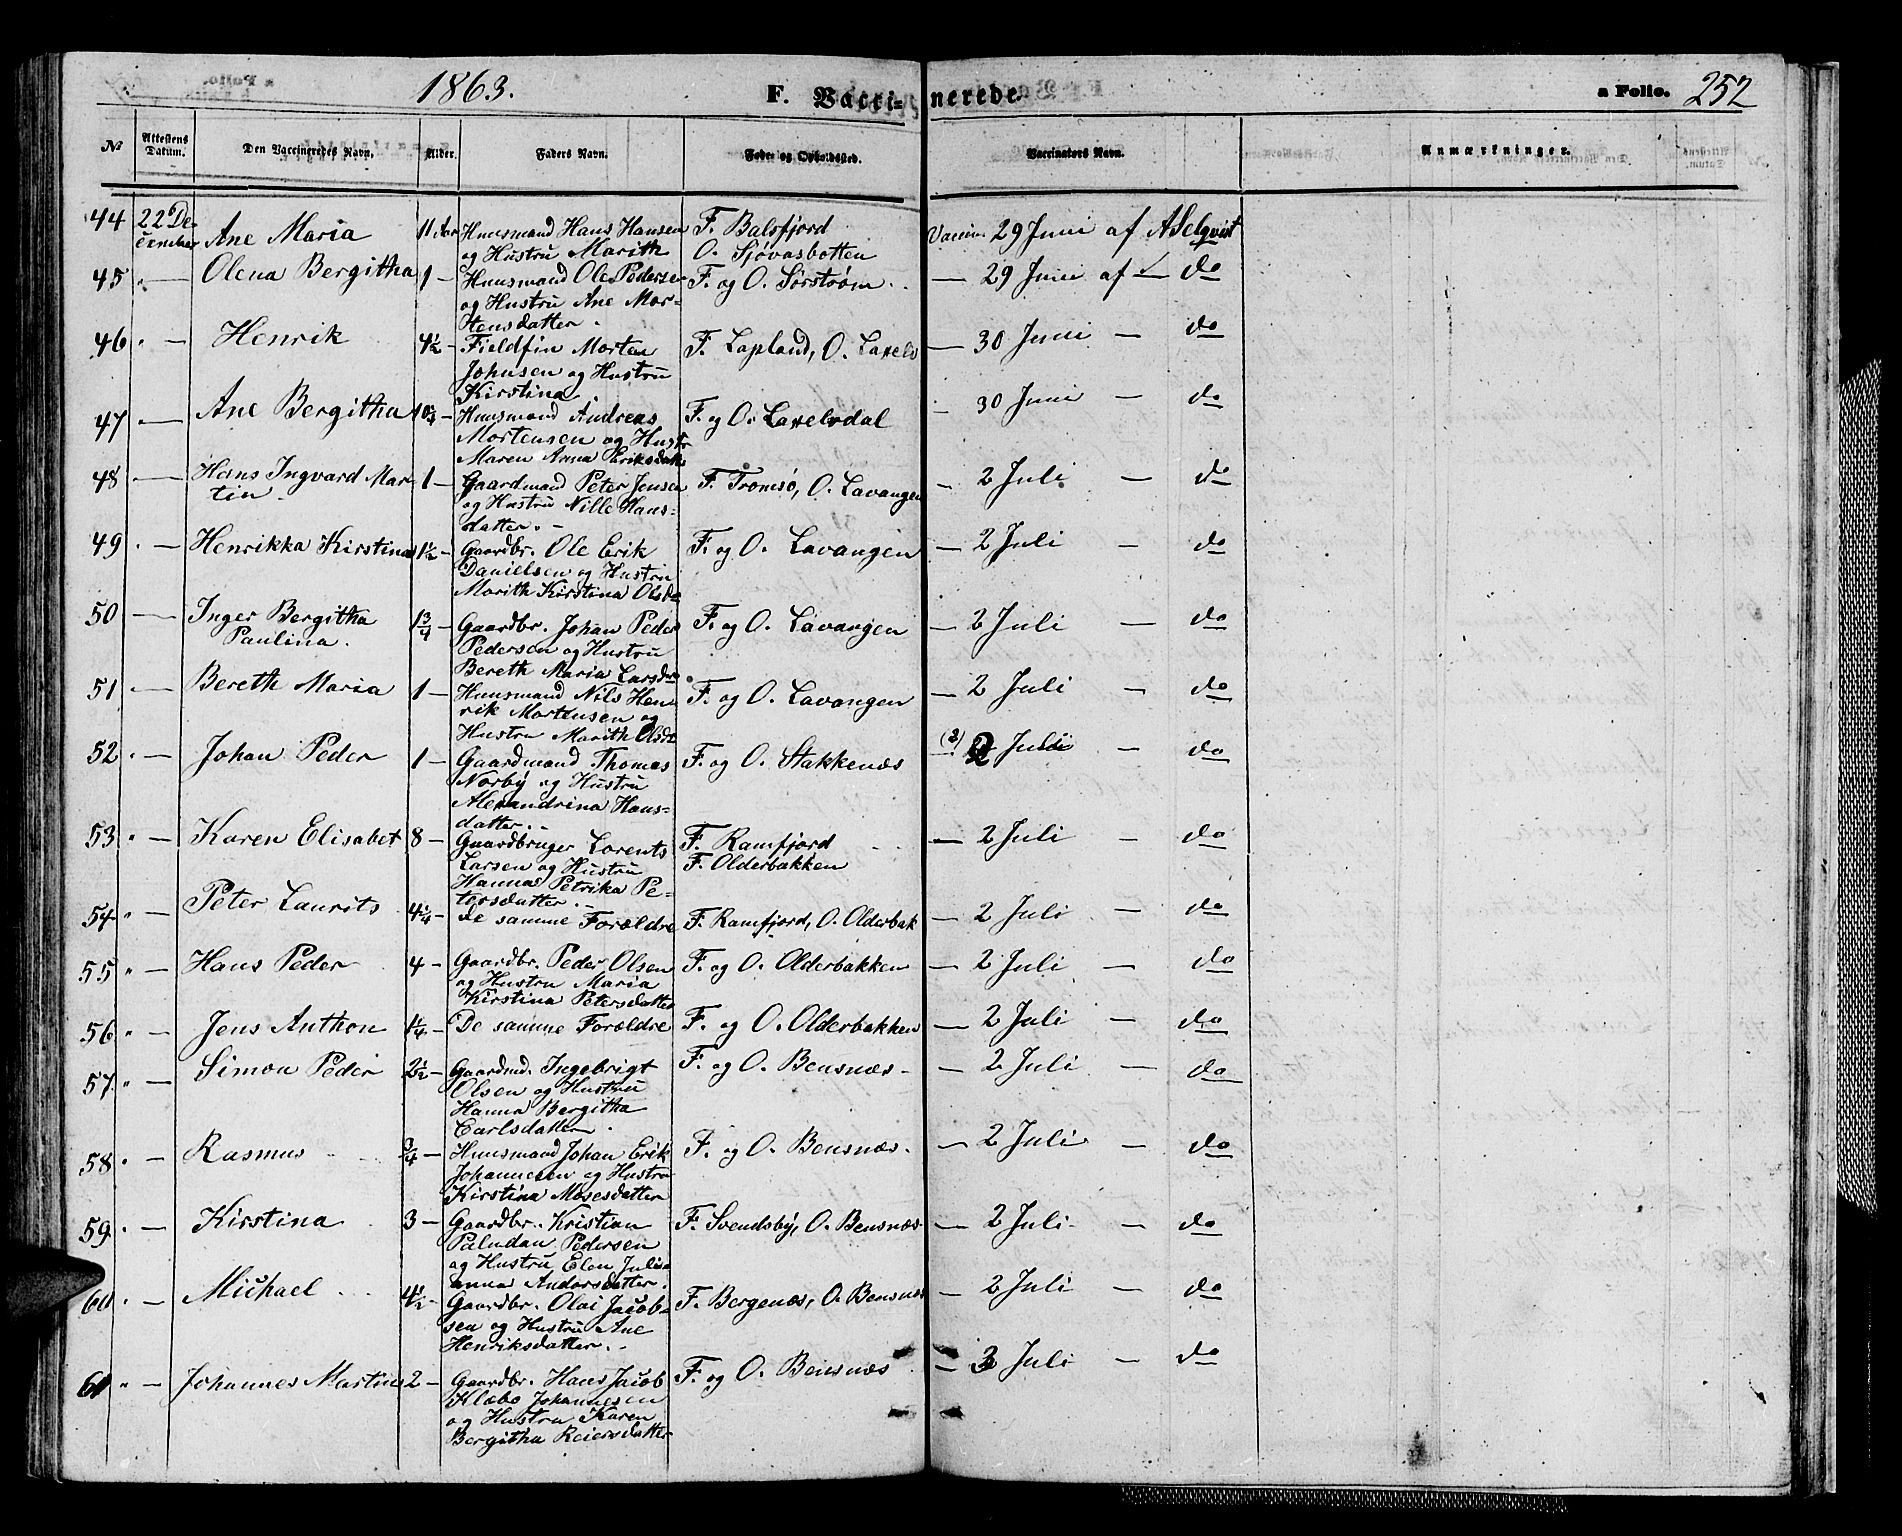 1863. F. Vacci- nerede. a Folio. 252
No Attestens Datum. Den Vaccineredes Navn. Alder. Faders Navn. Føde og Opholdsted. Vaccinators Navn. Anmærkninger.
44 22 De- Huusmand Hans Hansen F. Balsfjord
cember Ane Maria 11 Aar og Hustru Marith O. Sjøvasbotten Vaccin. 29 Juni af A Selqvist
45 " — Olena Bergitha 1 — Huusmand Ole Pederse F. og O. Sørstrøm — 29 Juni af — do
og Hustru Ane Mor-
tensdatter.
46 " — Henrik 4½ — Fieldfin Morten F. Lapland, O. Laxelv — 30 Juni — do
Johnsen og Hustru
Kirstina
47 — Ane Bergitha 10¾ — Huusmand Andreas F. og O. Laxelvdal — 30 Juni — do
Mortensen og Hustr
Maren Anna Eriksdatt
48 — Hans Ingvard Mar- 1 — Gaardmand Peter Jensen F. Tromsø, O. Lavangen — 2 Juli — do
tin og Hustru Nille Hans-
datter. —
49 " — Henrikka Kirstina 1½ — Gaardbr. Ole Erik F. og O. Lavangen — 2 Juli — do
Danielsen og Hustru
Marith Kirstina Olsda
50 — Inger Bergitha 1¾ — Gaardbr. Johan Peder F. og O. Lavangen — 2 Juli — do
Paulina. Pedersen og Hustru
Bereth Maria Larsdr
51 " — Bereth Maria 1 — Huusmand Nils Hen- F. og O. Lavangen — 2 Juli — do
rik Mortensen og
Hustru Marith Olsdr
52 " — Johan Peder 1 — Gaardmand Thomas F. og O. Stakkenæs (2) 2 Juli — do
Norby og Hustru
Alexandrina Hans-
datter. -
53 " — Karen Elisabet 8 — Gaardbruger Lorents F. Ramfjord — 2 Juli — do
Larsen og Hustru F. Olderbakken
Hanna Petrika Pe-
tersdatter. -
54 " — Peter Laurits 4¼ — De samme Forældre F. Ramfjord, O. Olderbak — 2 Juli — do
55 " — Hans Peder 4 — Gaardbr. Peder Olsen F. og O. Olderbakken — 2 Juli — do
og Hustru Maria
Kirstina Petersdatter
56 " — Jens Anthon 1¼ — De samme Forældre F. og O. Olderbakken — 2 Juli — do
57 " — Simon Peder 2½ — Gaardmd. Ingebrigt F. og O. Bensnæs - — 2 Juli — do
Olsen og Hustru
Hanna Bergitha
Carlsdatter.
58 " — Rasmus ¾ — Huusmand Johan Erik F. og O. Bensnæs. — 2 Juli — do
Johannesen og Hustru
Kirstina Mosesdatter
59 " — Kirstina 3 — Gaardbr. Kristian F. Svendsby, O. Bensnæs — 2 Juli — do
Paludan Pedersen
og Hustru Elen Juli-
anna Andersdatter.
60 " — Michael 4½ — Gaardbr. Olai Jacob- F. Bergenæs, O. Bensnæs — 2 Juli — do
sen og Hustru Ane
Henriksdatter. -
61 " — Johannes Martin 2 — Gaardbr. Hans Jacob F. og O. Bensnæs — 3 Juli — do
Klæbo Johannesen
og Hustru Karen
Bergitha Reiersdatter